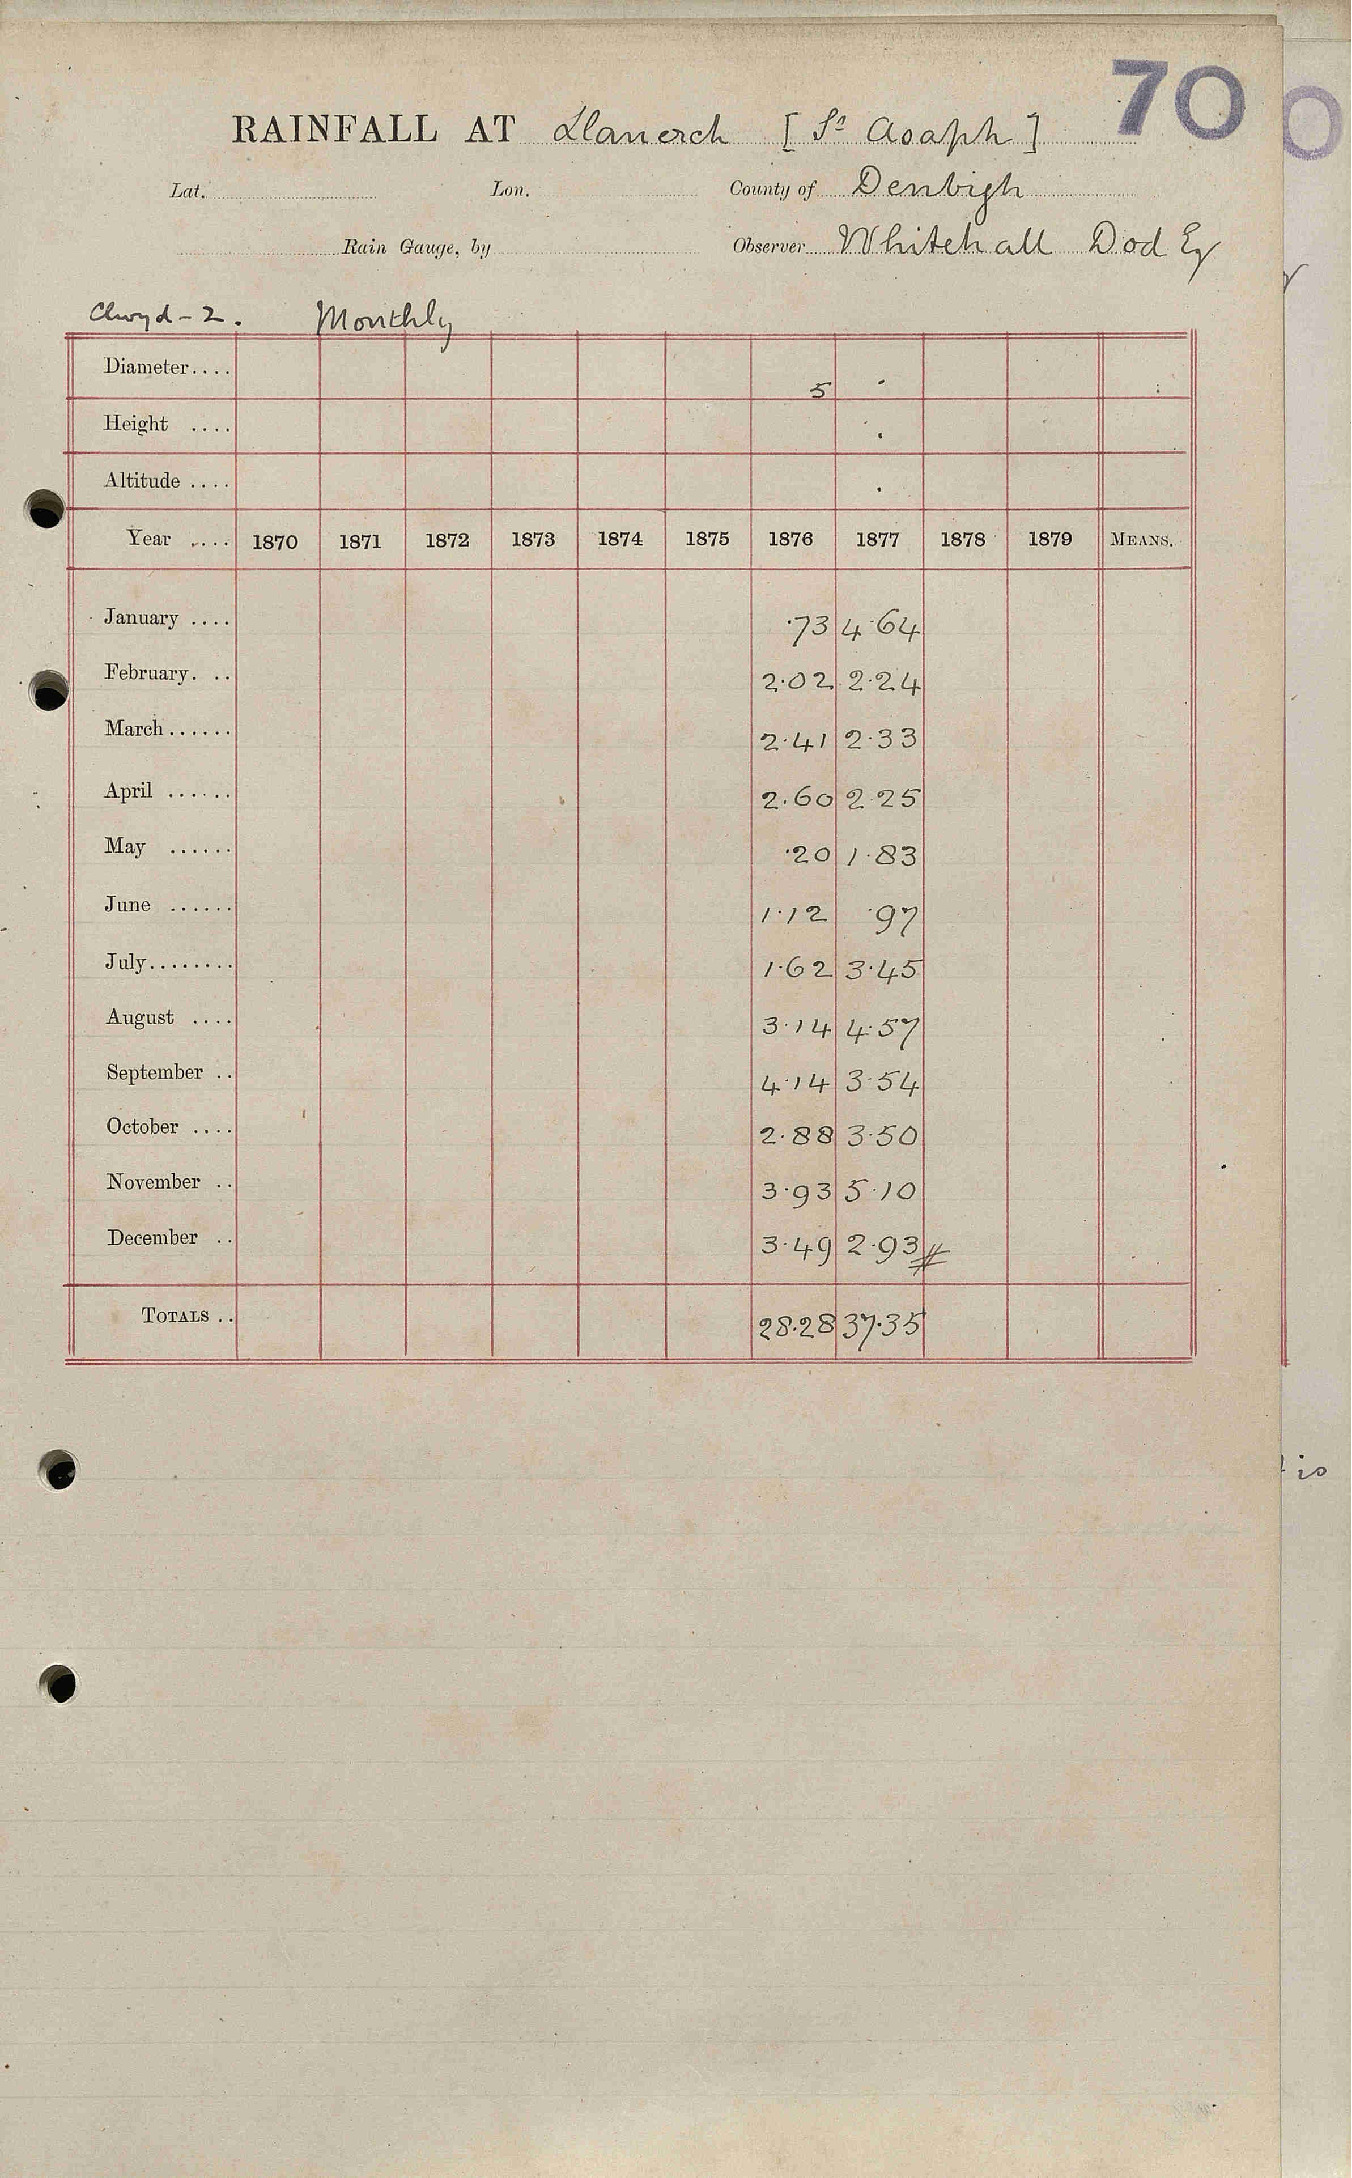 70
RAINFALL AT Llanerch [St Asaph]
Lat. Lon. County of Denbigh
Rain Gauge, by Observer Whitehall Dod Esq
Clwyd - 2. Monthly
Diameter.... 5
Height ....
Altitude ....
Year .... 1870 1871 1872 1873 1874 1875 1876 1877 1878 1879 MEANS.
January .... ·73 4·64
February. .. 2·02 2·24
March...... 2·41 2·33
April ...... 2·60 2·25
May ...... ·20 1·83
June ...... 1·12 ·97
July........ 1·62 3·45
August .... 3·14 4·57
September .. 4·14 3·54
October .... 2·88 3·50
November .. 3·93 5·10
December .. 3·49 2·93 #
TOTALS .. 28·28 37·35